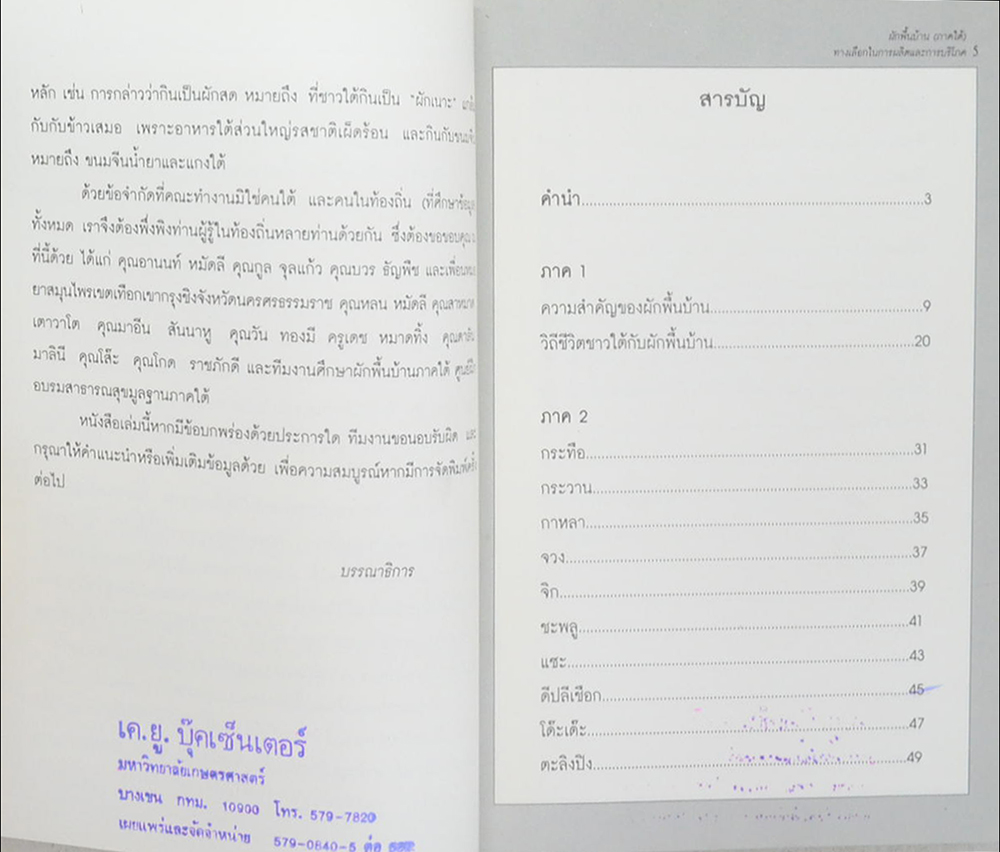 หลัก เช่น การกล่าวว่ากินเป็นผักสด หมายถึง ที่ชาวใต้กินเป็น "ผักเนาะ"
กับกับข้าวเสมอ เพราะอาหารใต้ส่วนใหญ่รสชาติเผ็ดร้อน และกินกับขนมจีน
หมายถึง ขนมจีนน้ำยาและแกงใต้
ด้วยข้อจำกัดที่คณะทำงานมิใช่คนใต้ และคนในท้องถิ่น (ที่ศึกษาข้อมูล
ทั้งหมด เราจึงต้องพึ่งพิงท่านผู้รู้ในท้องถิ่นหลายท่านด้วยกัน ซึ่งต้องขอขอบคุณ
ที่นี้ด้วย ได้แก่ คุณอานนท์ หมัดลี คุณกูล จุลแก้ว คุณบวร ธัญพืช และเพื่อน
ยาสมุนไพรเขตเทือกเขากรุงชิงจังหวัดนครศรธรรมราช คุณหลน หมัดลี
เตาวาโต คุณมาอีน สันนาหู คุณวัน ทองมี ครูเดช หมาดทิ้ง
มาลินี คุณโส๊ะ คุณโกด ราชภักดี และทีมงานศึกษาผักพื้นบ้านภาคใต้ ศูนย์ฝึก
อบรมสาธารณสุขมูลฐานภาคใต้
หนังสือเล่มนี้หากมีข้อบกพร่องด้วยประการใด ทีมงานขอนอบรับผิด และ
กรุณาให้คำแนะนำหรือเพิ่มเติมข้อมูลด้วย เพื่อความสมบูรณ์หากมีการจัดพิมพ์ครั้ง
ต่อไป
บรรณาธิการ
เค.ยู. บุ๊คเซ็นเตอร์
มหาวิทยาลัยเกษตรศาสตร์
บางเขน กทม. 10900 โทร. 579-7820
เผยแพร่และจัดจำหน่าย 579-0840-5 ต่อ
ผักพื้นบ้าน (ภาคใต้)
ทางเลือกในการผลิตและการบริโภค 5
สารบัญ
คำนำ....................3
ภาค 1
ความสำคัญของผักพื้นบ้าน....................9
วิถีชีวิตชาวใต้กับผักพื้นบ้าน....................20
ภาค 2
กระทือ....................31
กระวาน....................33
กาหลา....................35
จวง....................37
จิก....................39
ชะพลู....................41
แซะ....................43
ดีปลีเชือก....................45
โด๊ะเด๊ะ....................47
ตะลิงปิง....................49